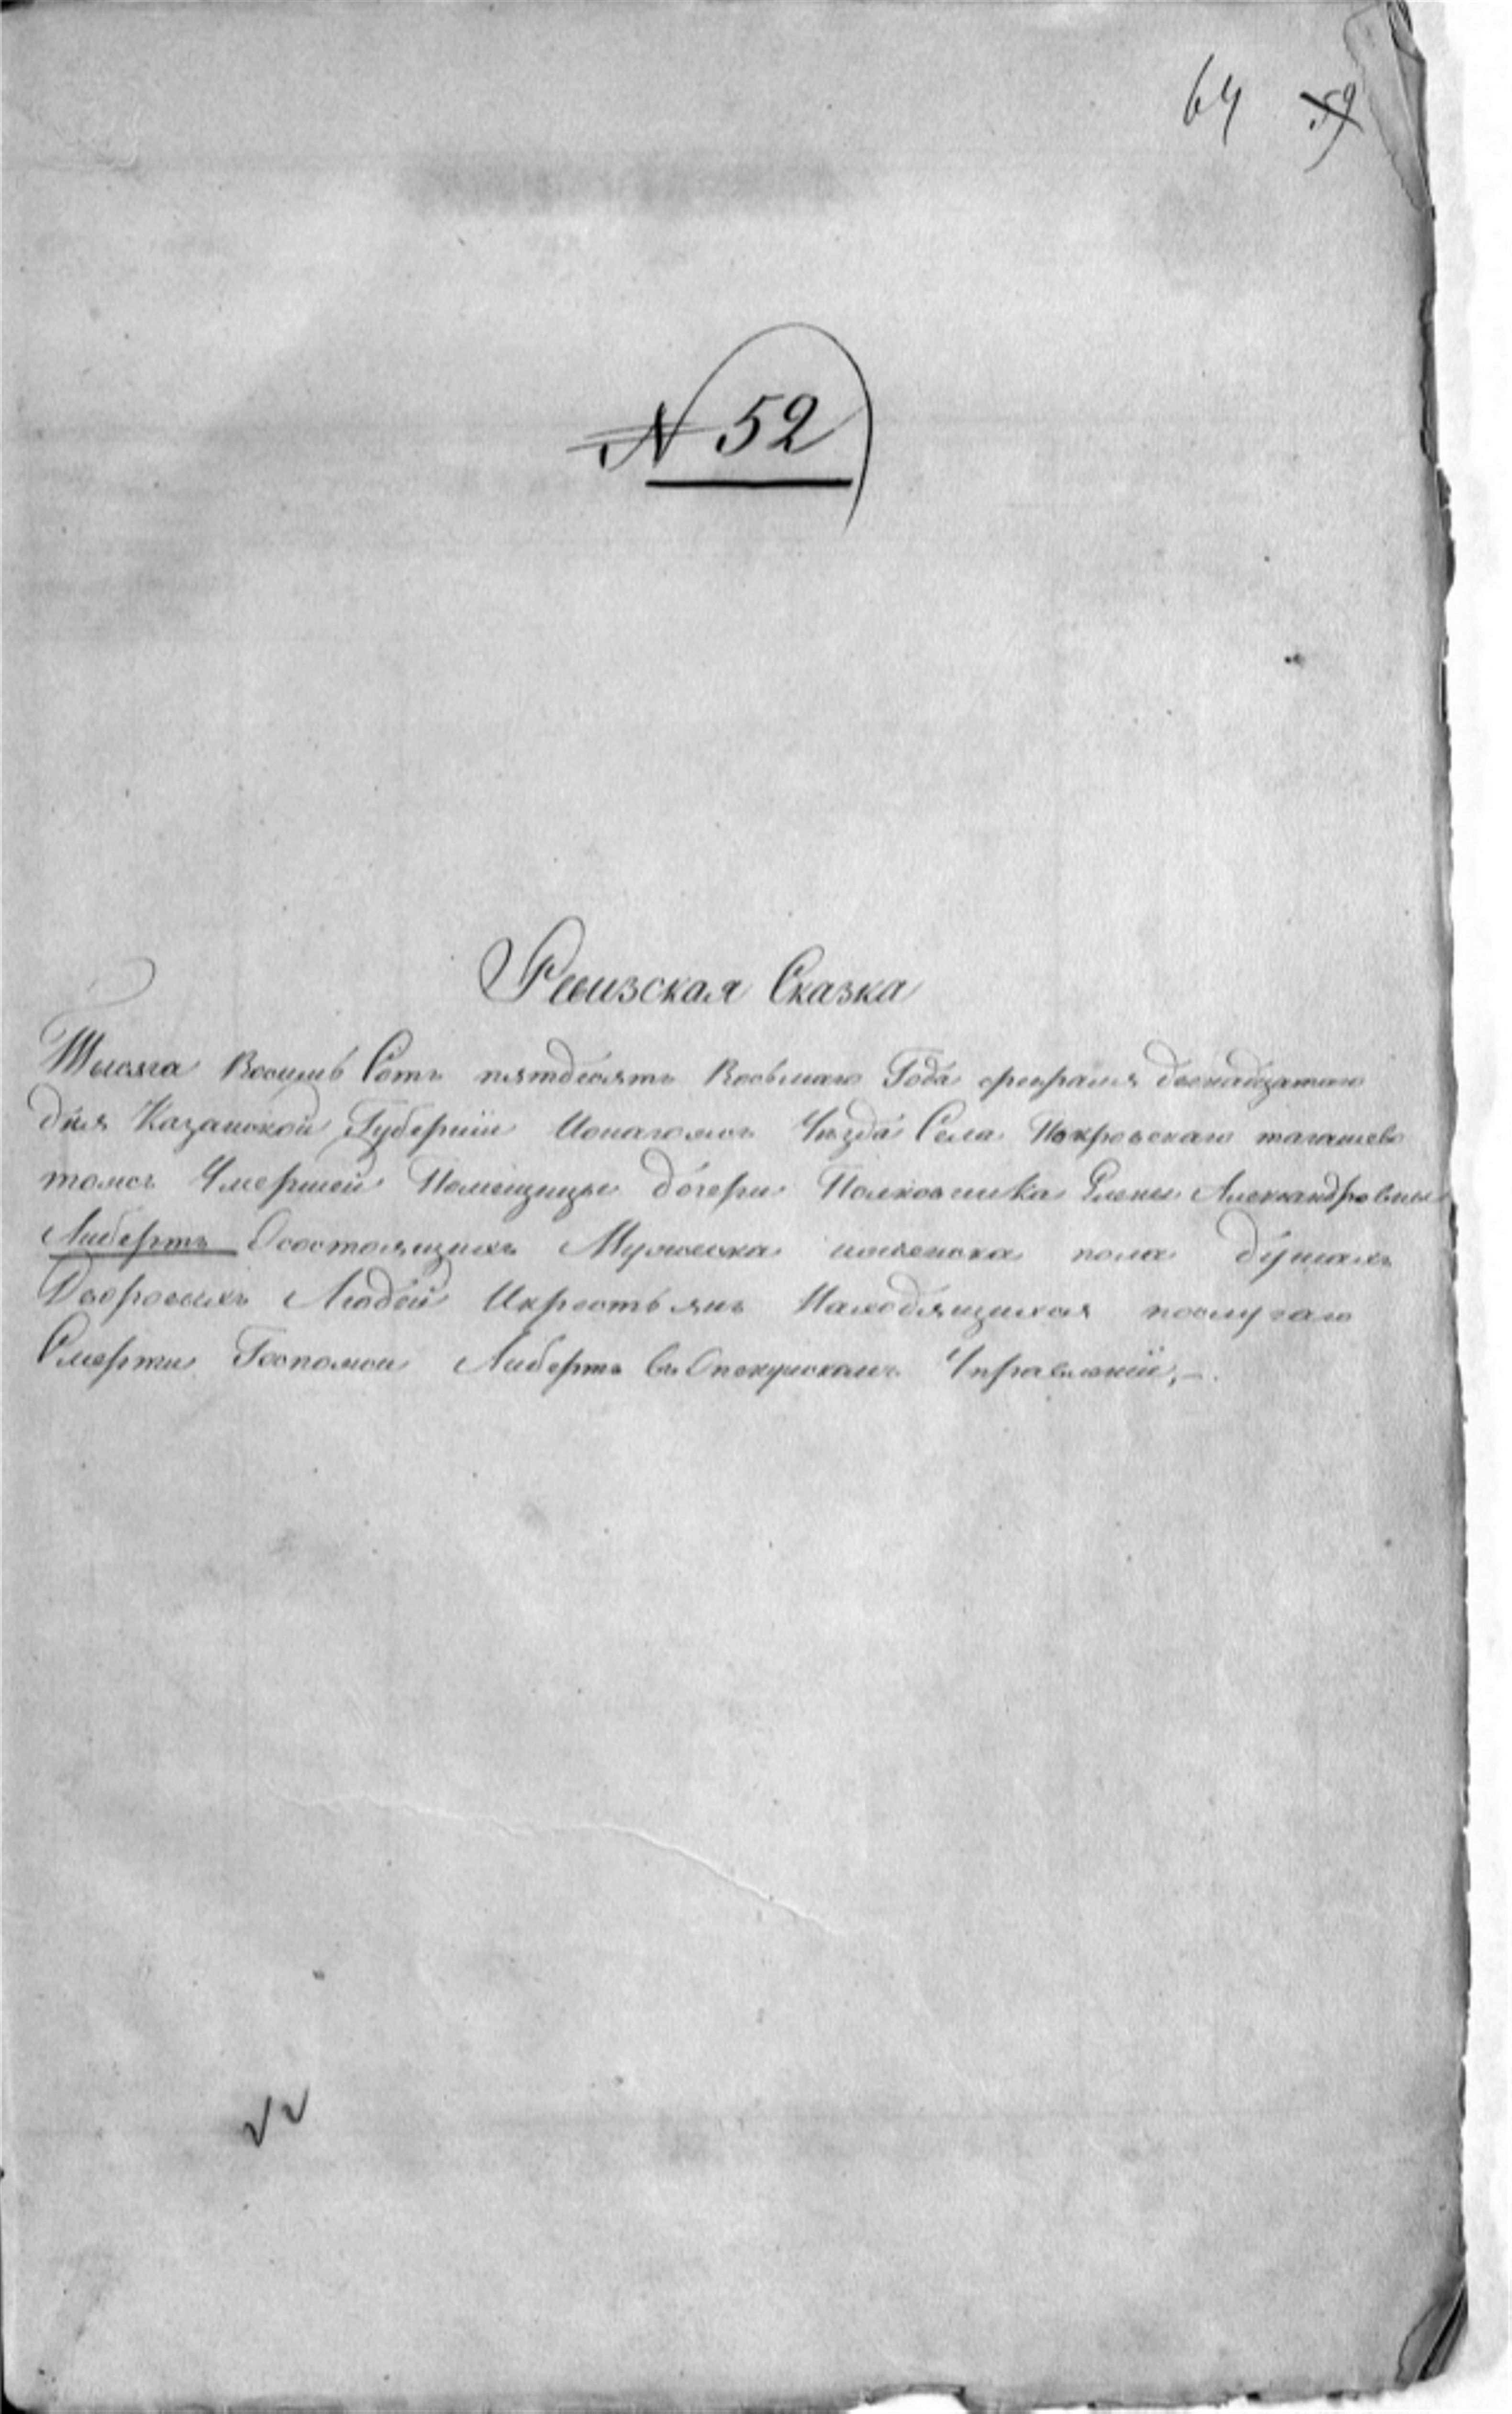 64 59
N 52
Ревизская Сказка
Тысяча Восемь Сотъ пятдесятъ Восьмаго Года февраля двенадцатаго
дня Казанской Губернїи Уезда Села Покровскаго тагашево
тожъ Умершей Помещицы дочери Полковника Елены Александровны
Либертъ Осостоящихъ Мужеска иженска пола душахъ
Дворовыхъ Людей Икрестьянъ Находящихся послучаю
Смерти Госпожи Либертъ въ Опекунскомъ Управленїи,-.